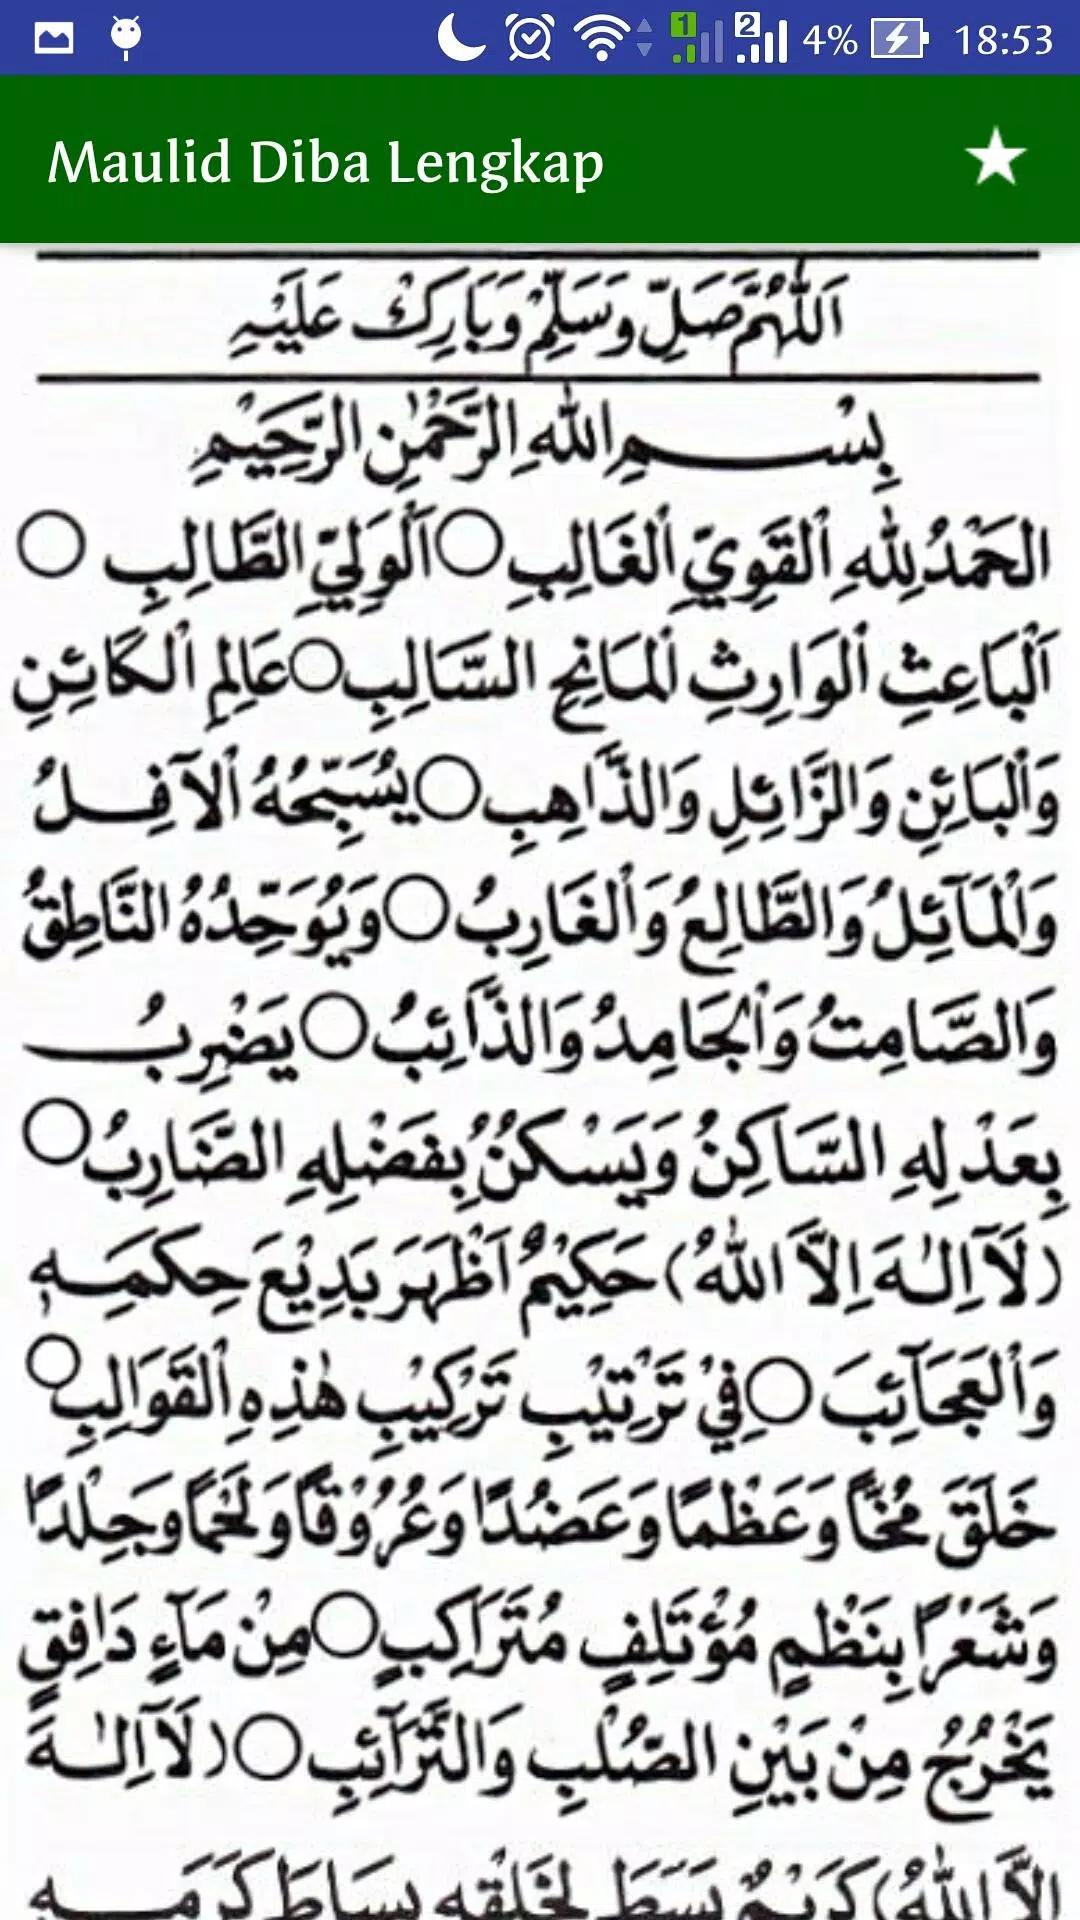 4% 18:53
Maulid Diba Lengkap
اَللّٰهُمَّ صَلِّ وَسَلِّمْ وَبَارِكْ عَلَيْهِ
بِسْـــمِ اللهِ الرَّحْمٰنِ الرَّحِيْمِ
الحَمْدُ لِلّٰهِ الْقَوِيِّ الْغَالِبِ ○ اَلْوَلِيِّ الطَّالِبِ ○
اَلْبَاعِثِ الْوَارِثِ الْمَانِحِ السَّالِبِ ○ عَالِمِ الْكَائِنِ
وَالْبَائِنِ وَالزَّائِلِ وَالذَّاهِبِ ○ يُسَبِّحُهُ الْآفِـلُ
وَالْمَآئِلُ وَالطَّالِعُ وَالْغَارِبُ ○ وَيُوَحِّدُهُ النَّاطِقُ
وَالصَّامِتُ وَالْجَامِدُ وَالذَّآئِبُ ○ يَضْرِبُ
بِعَدْلِهِ السَّاكِنُ وَيَسْكُنُ بِفَضْلِهِ الضَّارِبُ ○
(لَآ اِلٰـهَ اِلَّا اللهُ) حَكِيْمٌ اَظْهَرَ بَدِيْعَ حِكَمِـهٖ
وَالْعَجَآئِبَ ○ فِيْ تَرْتِيْبِ تَرْكِيْبِ هٰذِهِ الْقَوَالِبِ ○
خَلَقَ مُخًّا وَعَظْمًا وَعَضُدًا وَعُرُوْقًا وَلَحْمًا وَجِلْدًا
وَشَعْرًا بِنَظْمٍ مُؤْتَلِفٍ مُتَرَاكِبٍ ○ مِنْ مَآءٍ دَافِقٍ
يَخْرُجُ مِنْ بَيْنِ الصُّلْبِ وَالتَّرَآئِبِ ○ (لَآ اِلٰـهَ
اِلَّا اللهُ) كَرِيْمٌ بَسَطَ لِخَلْقِهِ بِسَاطَ كَرَمِـهِ